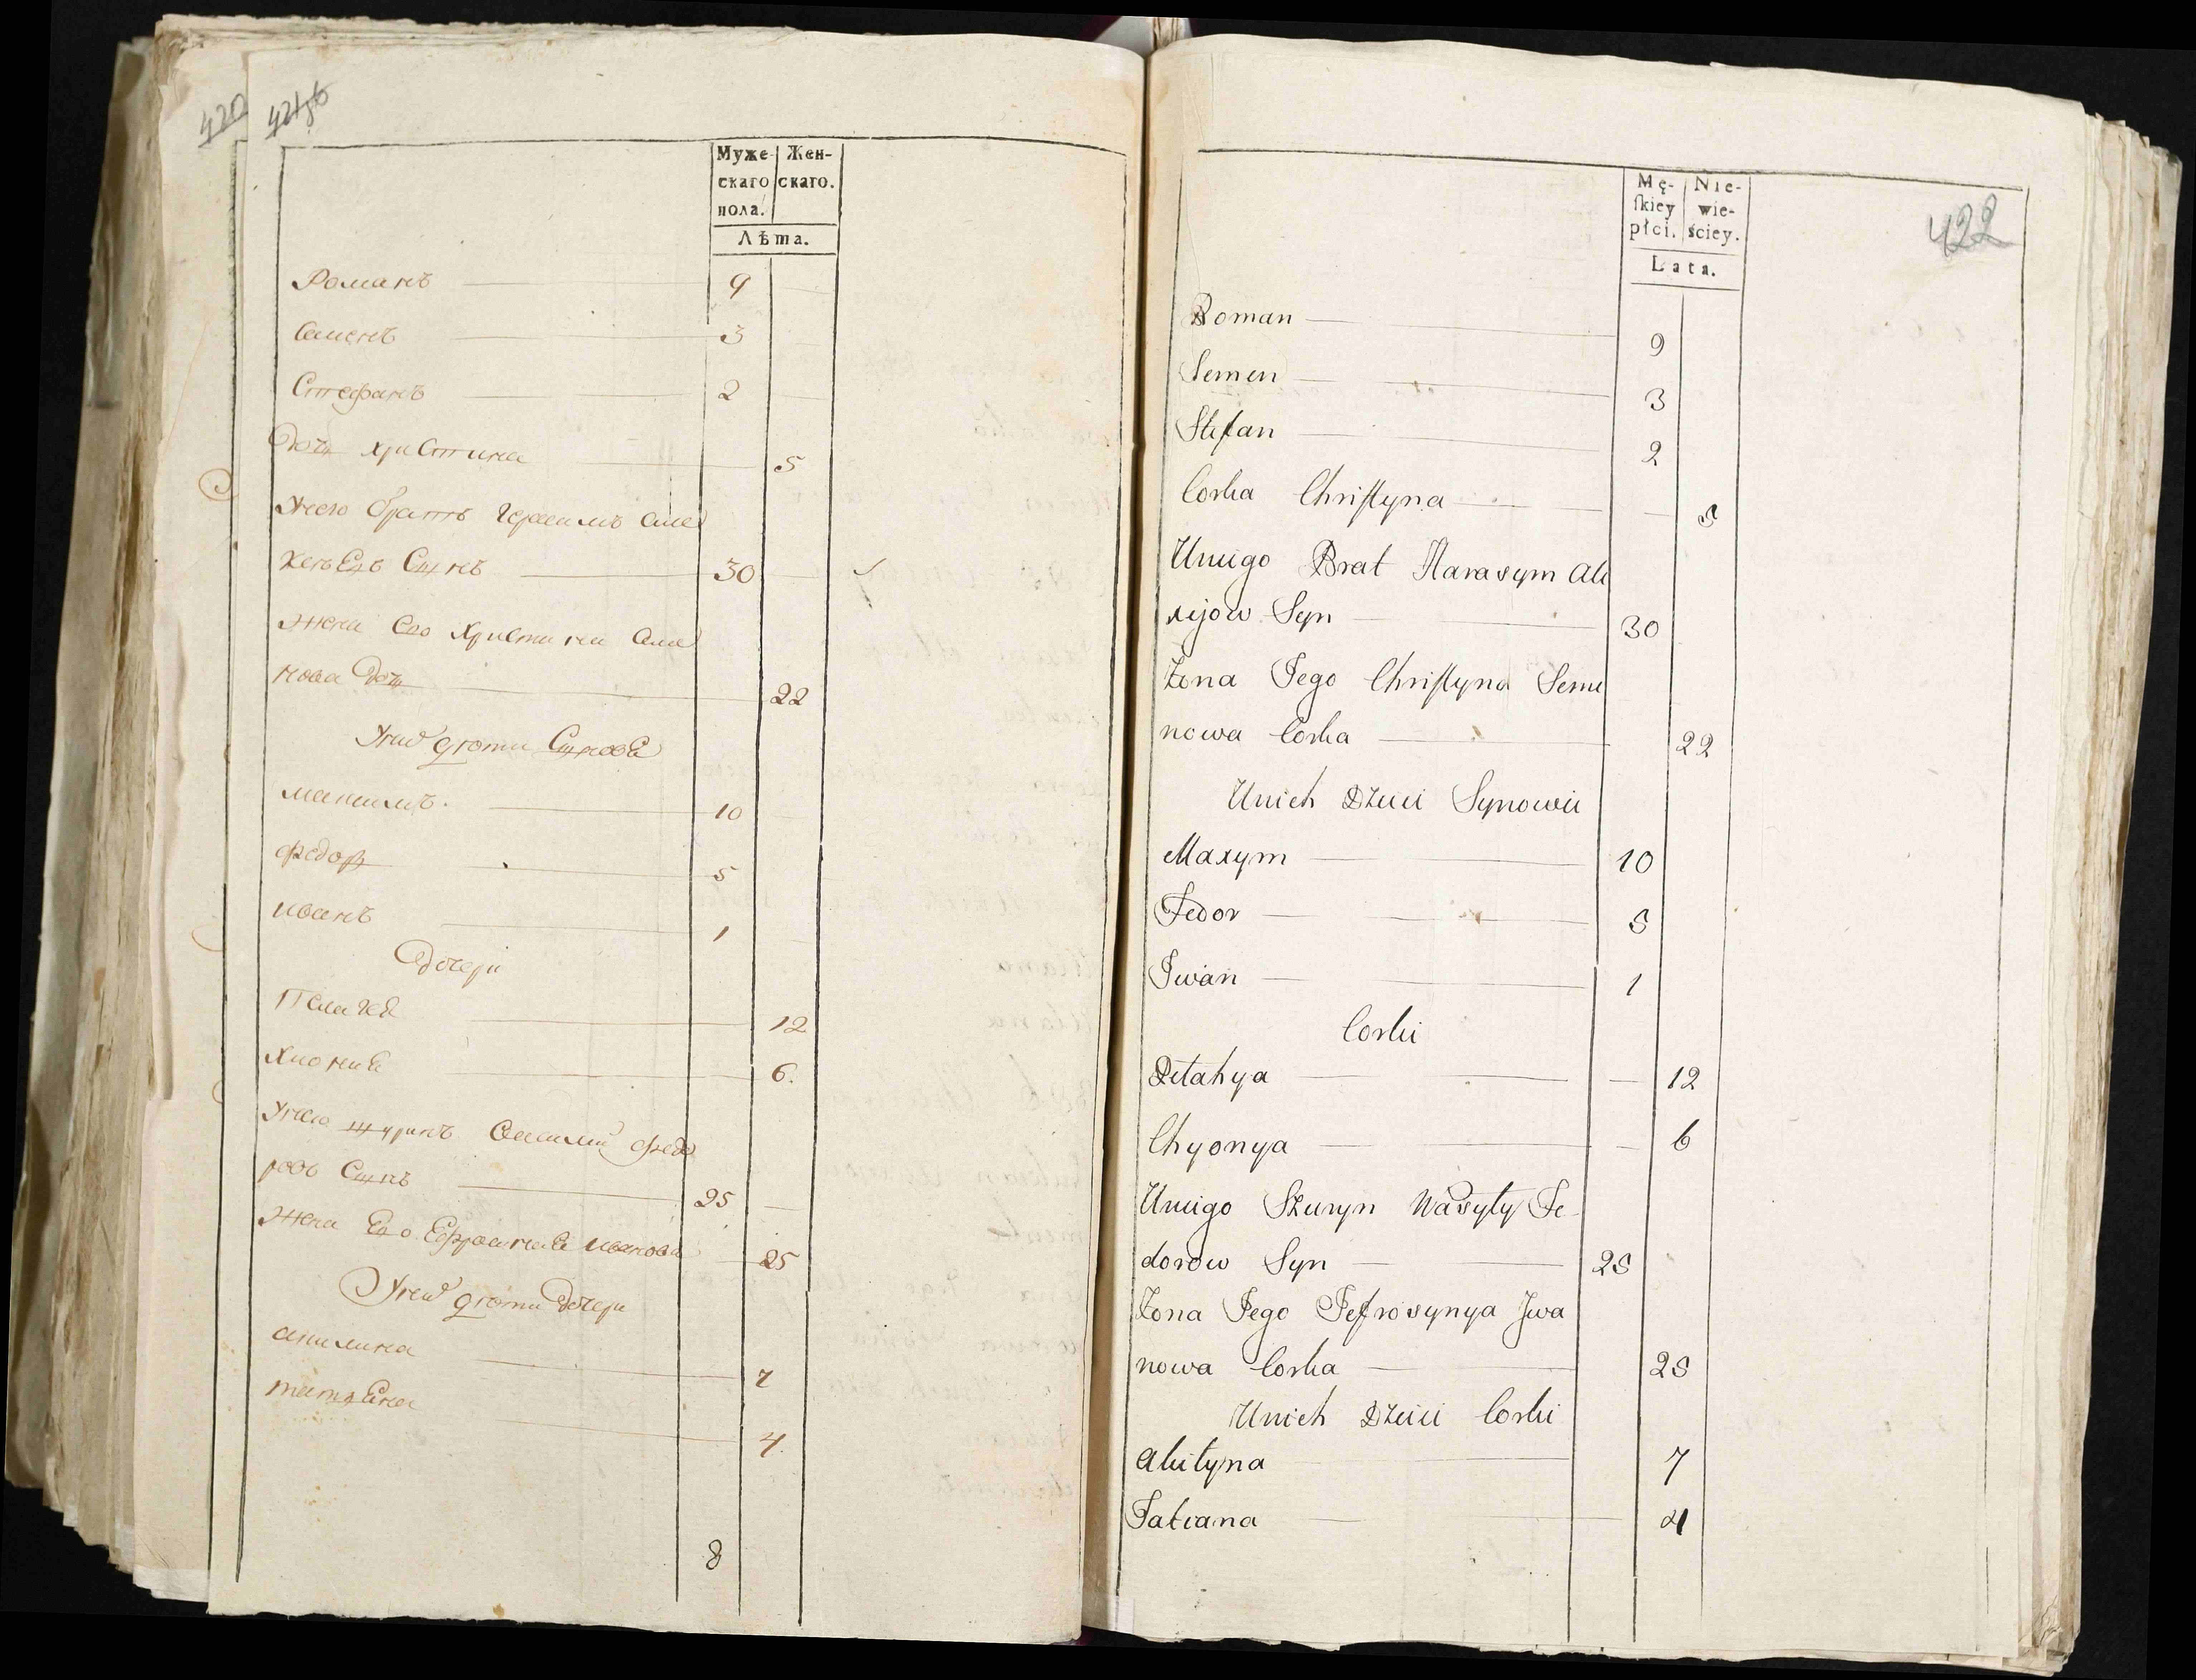 420
421об
Муже- Жен-
скаго скаго.
пола.
Лѣта.
Романъ 9
Семенъ 3
Стефанъ 2
Дочь христина 5
Унего братъ Герасимъ Але
Сынъ 30
Жена Его Христина Семе
нова Дочь 22
Унихъ дѣти Сынове
максимъ 10
федоръ 5
иванъ 1
Дочери
Пелагея 12
Хиония 6.
Унего шуринъ Василий федо
ровъ Сынъ 25
Жена Его Ефросинья иванова 25
Унихъ дѣти Дочери
акилина 7
татьяна 4.
8
Mę- Nie-
skiey wie-
płci. ściey.
Lata.
422
Roman 9
Semen 3
Stefan 2
Corka Christyna 5
Uniego Brat Harasym Ale
xijow Syn 30
Zona Jego Christyna Seme
nowa Corka 22
Unich Dzieci Synowie
Maxym 10
Fedor 5
Jwan 1
Corki
Pelahya 12
Chyonya 6
Uniego Szuryn Wasyly Fe-
dorow Syn 25
Zona Jego Jefrosynya Jwa
nowa Corka 25
Unich Dzieci Corki
Akilyna 7
Tatiana 4